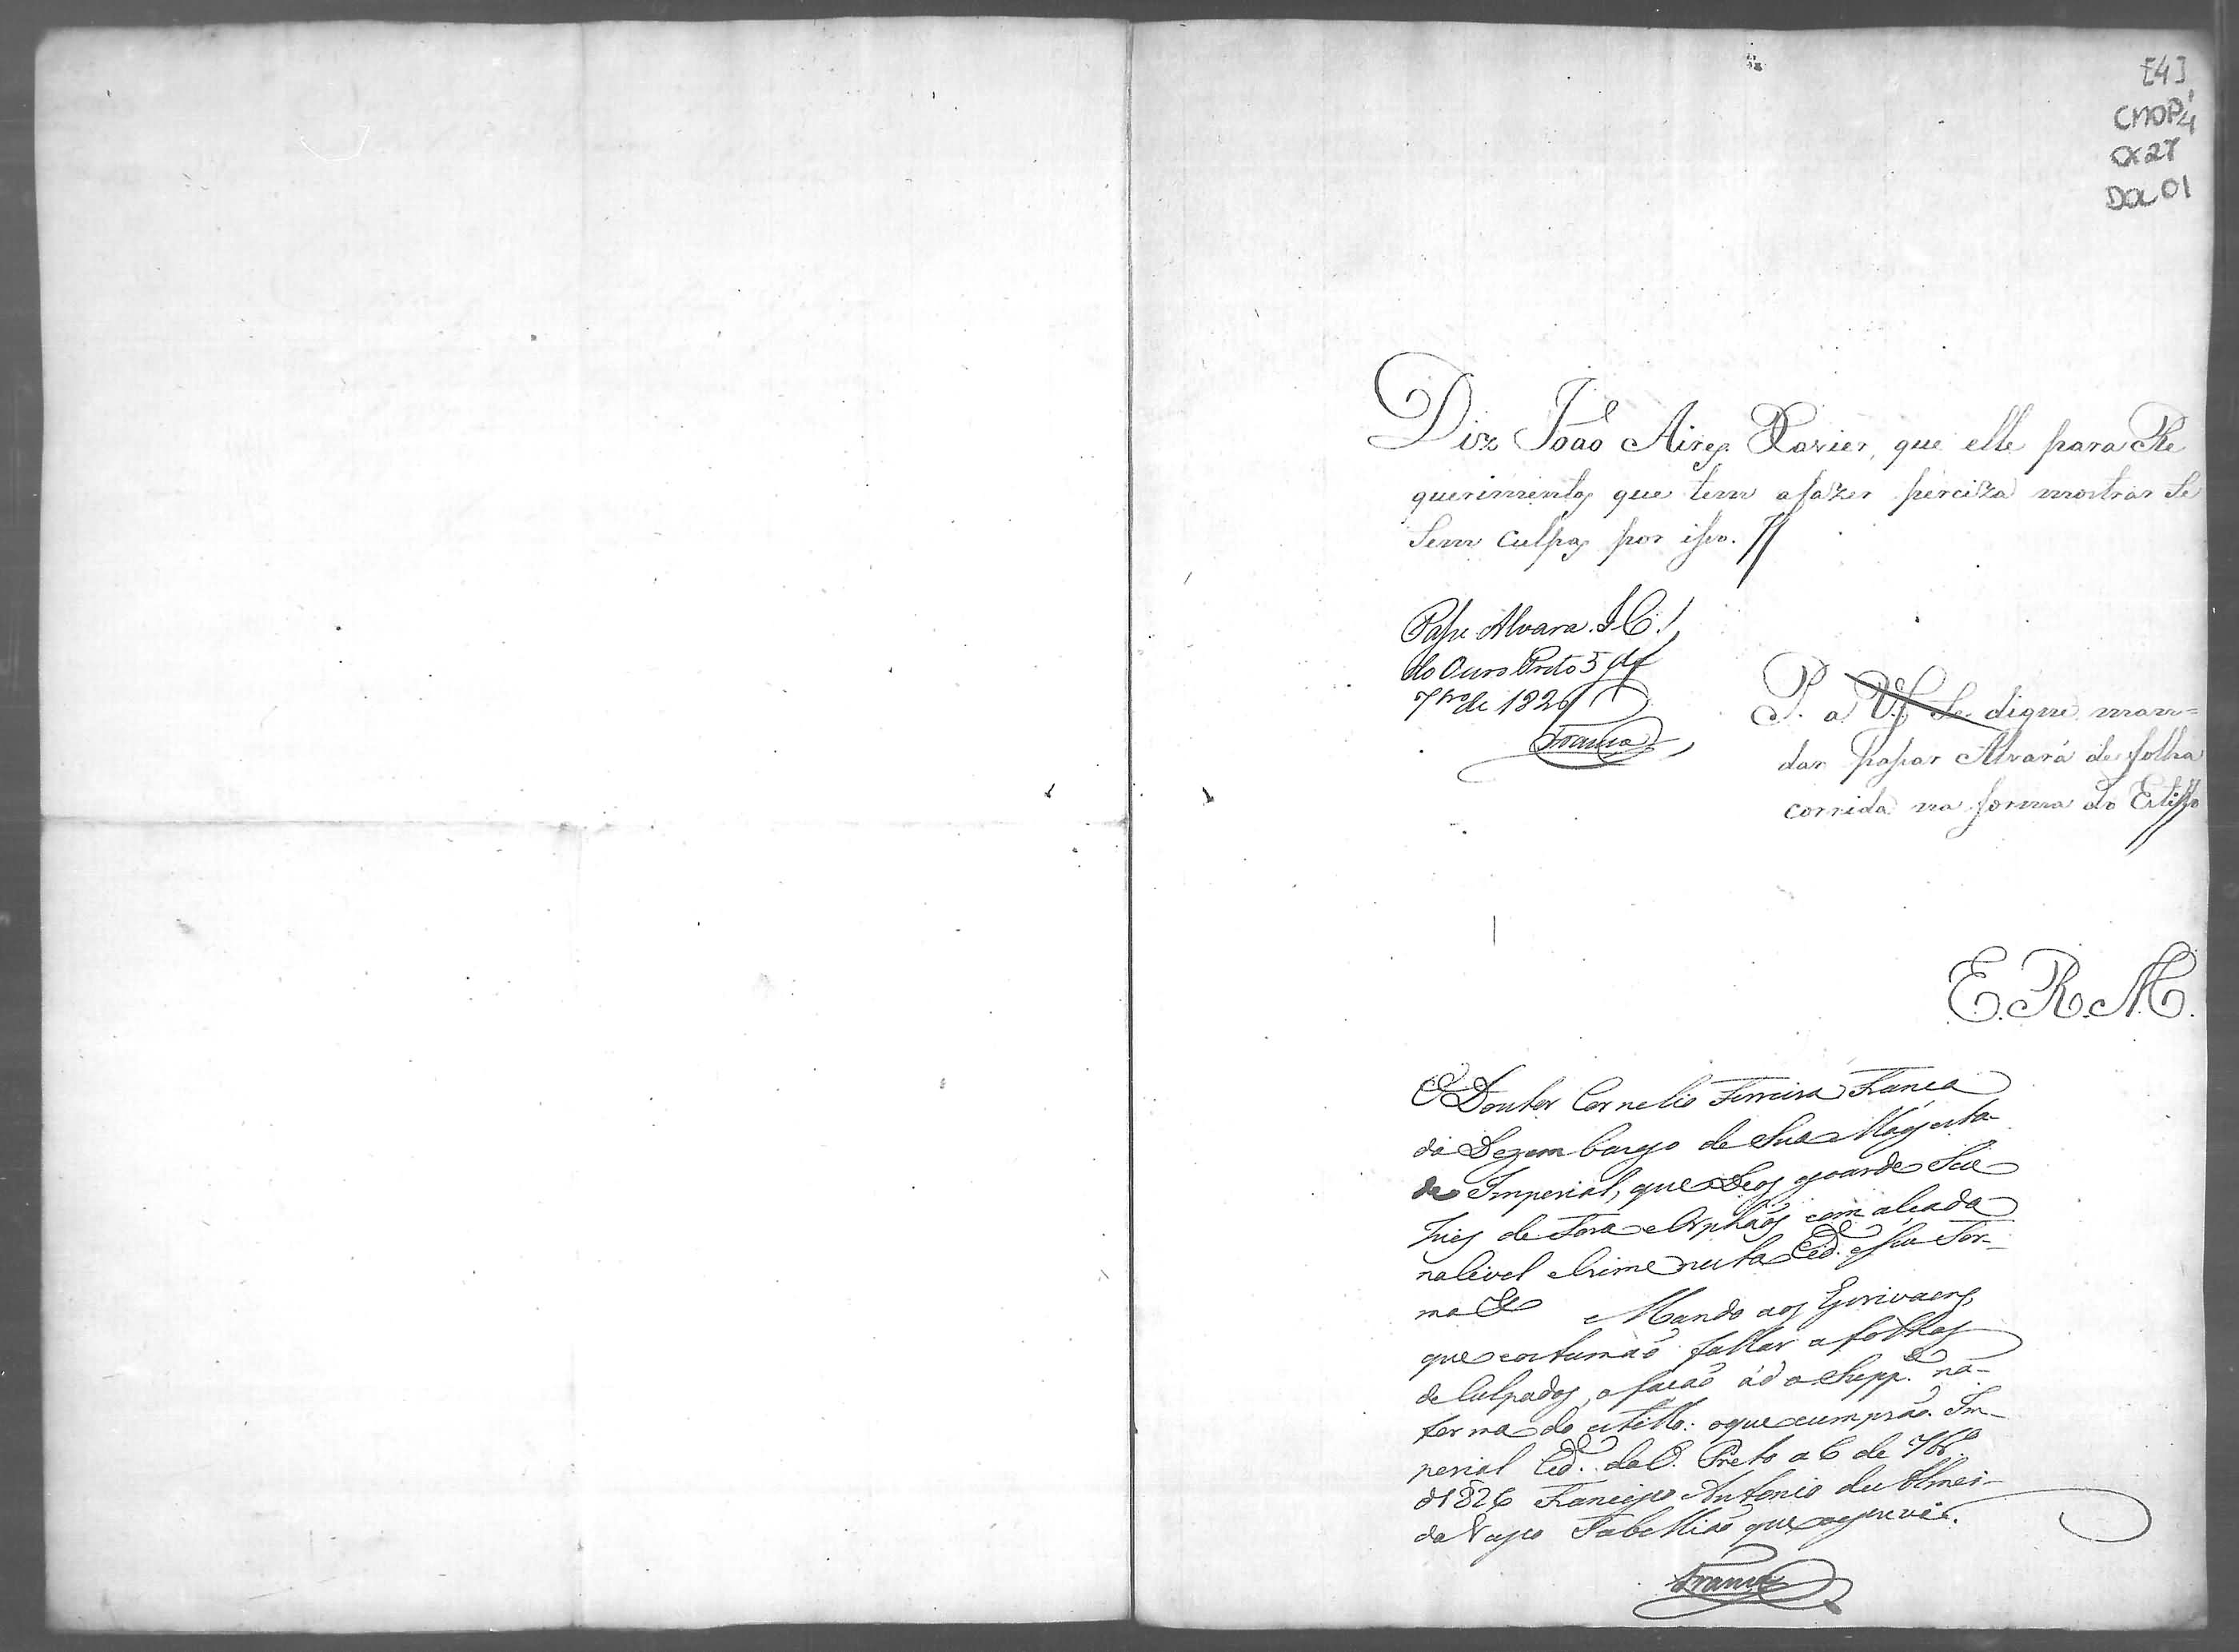 [4]
CMOP
Cx 27
Doc 01
Diz João Aires Xavier, que elle para Re
querimentos que tem afazer perciza mostrar Se
Sem culpas por isso.
Passe Alvara. I C.
do Ouro Preto 5 de
7bro de 1826
Franca
P. a V.S. Se digne man=
dar passar Alvará de folha
corrida na forma do Estillo
E. R. M.
O Doutor Cornelio Ferreira Franca
do Dezembargo de Sua Magesta-
de Imperial, que Deos goarde Seu
Juis de Fora e Orphãos com alcada
no Civel e Crime nesta Cid.e e Seu Ter-
mo &
Mando aos Escrivaens,
que costumão fallar a folhas
de Culpados, o facão ád o Supp.e na
forma do estillo: o que cumprão. Im-
perial Cid.e do O. Preto a 6 de 7br.o
d1826 Francisco Antonio de Almei-
da Tabellião que o escrevi.
Franca